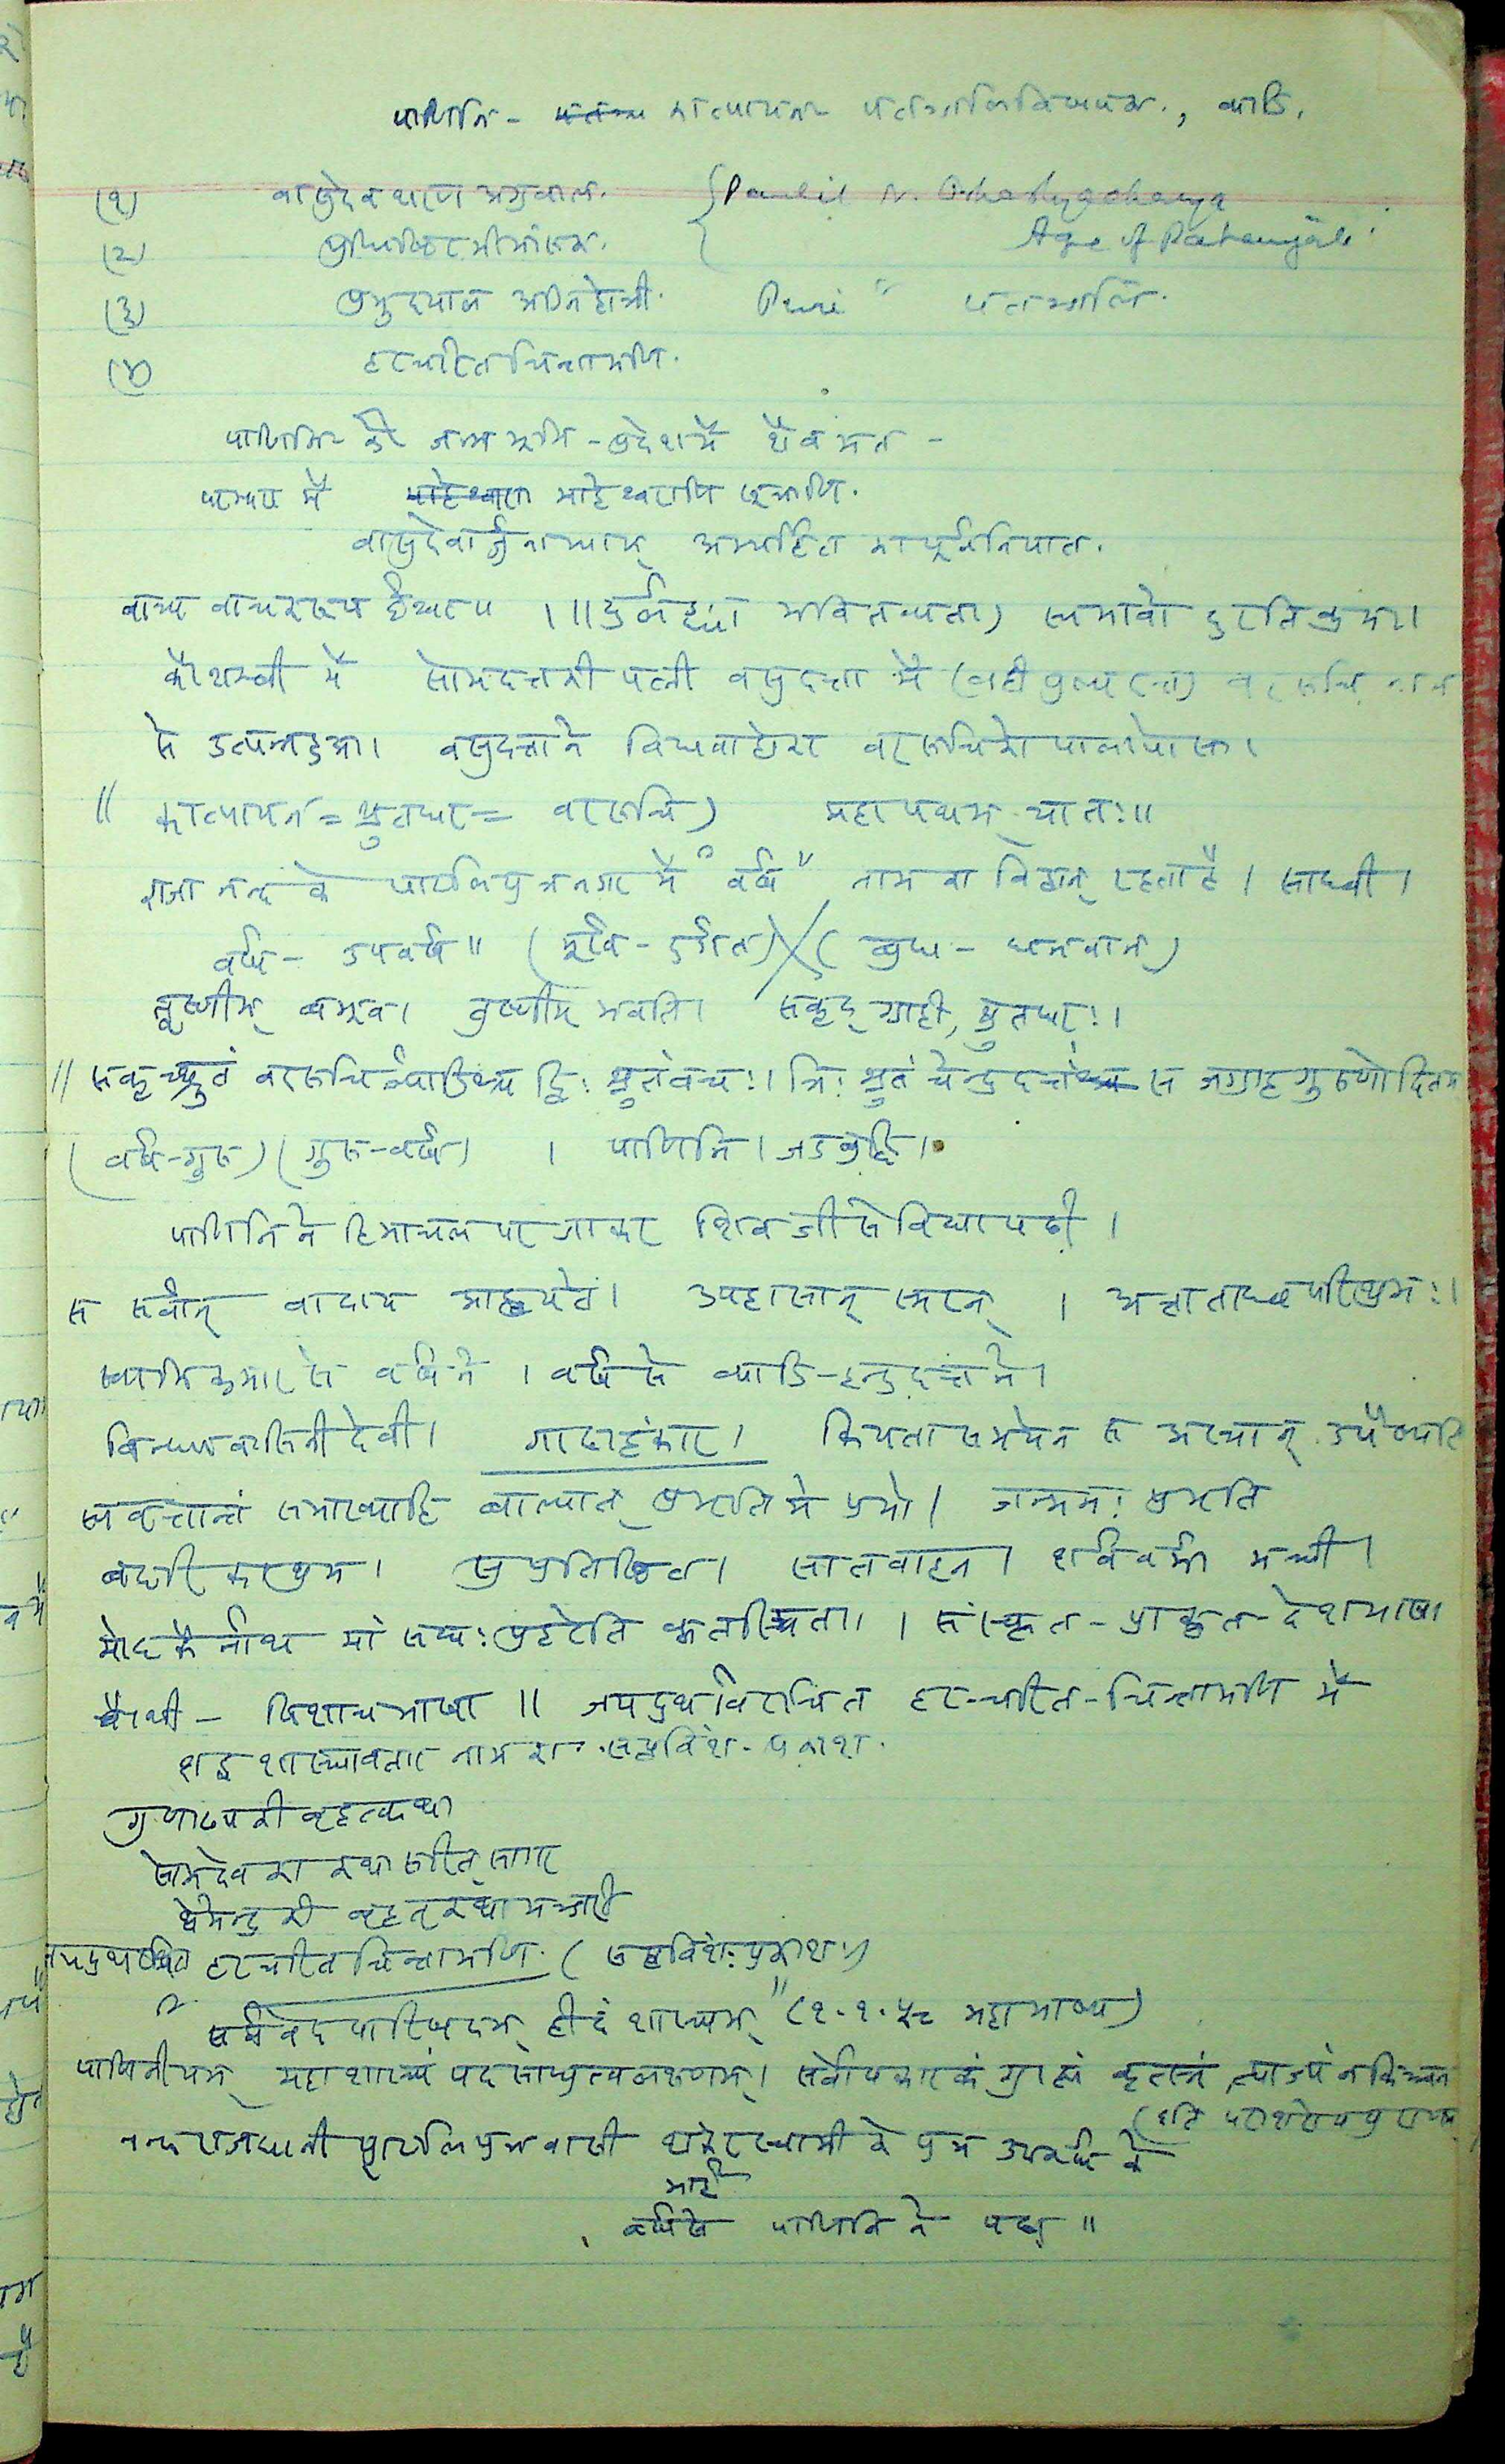 पाणिनि - कात्यायन पतञ्जलिविषयक, व्याडि.
(१) वासुदेव शरण अग्रवाल. Age of Patanjali
(२) युधिष्ठिर मीमांसक.
(३) प्रभुदयाल अग्निहोत्री. Puri " पतञ्जलि.
(४) हरचरित चिन्तामणि.
पाणिनि की जन्म भूमि - प्रदेश में शैव मत -
परम्परा में माहेश्वराणि सूत्राणि.
वासुदेवार्जुनाभ्याम् अभ्यर्हित का पूर्वनिपात.
भवितव्यता) स्वभावो दुरतिक्रमः।
कौशाम्बी में सोमदत्त की पत्नी वसुदत्ता में (वही पुष्पदन्त) वररुचि नाम
से उत्पन्न हुआ। वसुदत्ता ने विधवा होकर वररुचि को पाला पोसा।
" कात्यायन = श्रुतधर = वररुचि) महापथम् यातः॥
राजा नन्द के पाटलिपुत्र नगर में "वर्ष" नाम का विद्वान् रहता है। साध्वी।
वर्ष - उपवर्ष" (मूर्ख - दुर्गत) X ( बुध - धनवान)
तूष्णीम् बभूव। तूष्णीम् भवति। सकृद् ग्राही, श्रुतधरः।
॥ सकृच्छ्रुतं वररुचिर्व्याडिश्च द्विः श्रुतं वचः। त्रिः श्रुतं चेन्द्रदत्तः स जग्राह गुरुणोदितम
(वर्ष-गुरु) (गुरु-वर्ष) । पाणिनि। जडबुद्धि।
पाणिनि ने हिमाचल पर जाकर शिवजी से विद्या पढी।
स सर्वान् वादाय आह्वयत। उपहासान् स्मरन्। परिश्रमः।
स्वामि कुमार से वर्ष ने। वर्ष से व्याडि - इन्द्रदत्त ने।
विन्ध्यवासिनी देवी। गाढाहंकार। कियता समयेन स
स्ववृत्तान्तं समाख्याहि बाल्यात् प्रभृति मे प्रभो। जन्मनः प्रभृति
बदरिकाश्रम। सुप्रतिष्ठित। सातवाहन। शर्ववर्मा मन्त्री।
मोदकैर्नाथ मां संस्कृत - प्राकृत - देशभाषा
पैशाची - पिशाचभाषा ॥ जयद्रथविरचित हर-चरित-चिन्तामणि में
शब्द शास्त्रावतार नामका सप्तविंश - प्रकाश.
गुणाढ्य की बृहत्कथा
सोमदेव का कथा सरित् सागर
क्षेमेन्द्र की बृहत् कथा मञ्जरी
जयद्रथ रचित हरचरित चिन्तामणि. (सप्तविंशः प्रकाशः)
" सर्ववेद पारिषदम् हीदं शास्त्रम्" (२.१.५८ महाभाष्य)
पाणिनीयम् महाशास्त्रं पदसाधुत्वलक्षणम्। सर्वोपकारकं ग्राह्यं कृत्स्नं त्याज्यं न किञ्चन
(इति पराशरोपपुराण
नन्द राजधानी पाटलिपुत्र वासी शंकरस्वामी के पुत्र उपवर्ष के
भाई
वर्ष से पाणिनि ने पढा ॥